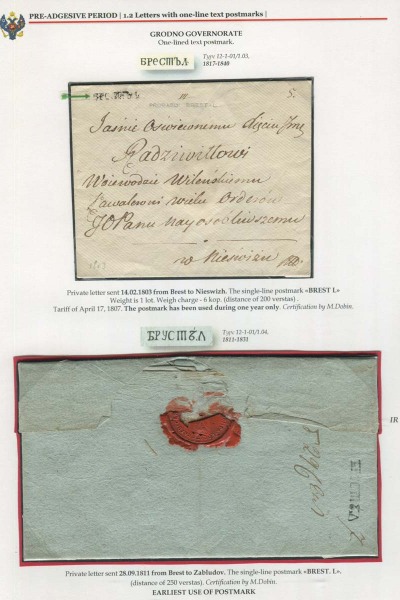 PRE-ADGESIVE PERIOD | 1.2 Letters with one-line text postmarks |
GRODNO GOVERNORATE
One-lined text postmark.
БРЕСТЪЛ
Type 12-1-01/1.03,
1817-1840
5.
Jaśnie Oświeconemu Xięciu Jmć
Radziwiłłowi
Woiewodzie Wileńskiemu
Kawalerowi wielu Orderów
JO Panu nayosobliwszemu
w Nieświżu
1803
Private letter sent 14.02.1803 from Brest to Nieswizh. The single-line postmark «BREST L»
Weight is 1 lot. Weigh charge - 6 kop. (distance of 200 verstas) .
Tariff of April 17, 1807. The postmark has been used during one year only. Certification by M.Dobin.
БРУСТЪЛ
Type 12-1-01/1.04,
1811-1831
IR
Private letter sent 28.09.1811 from Brest to Zabludov. The single-line postmark «BREST. L».
(distance of 250 verstas). Certification by M.Dobin.
EARLIEST USE OF POSTMARK